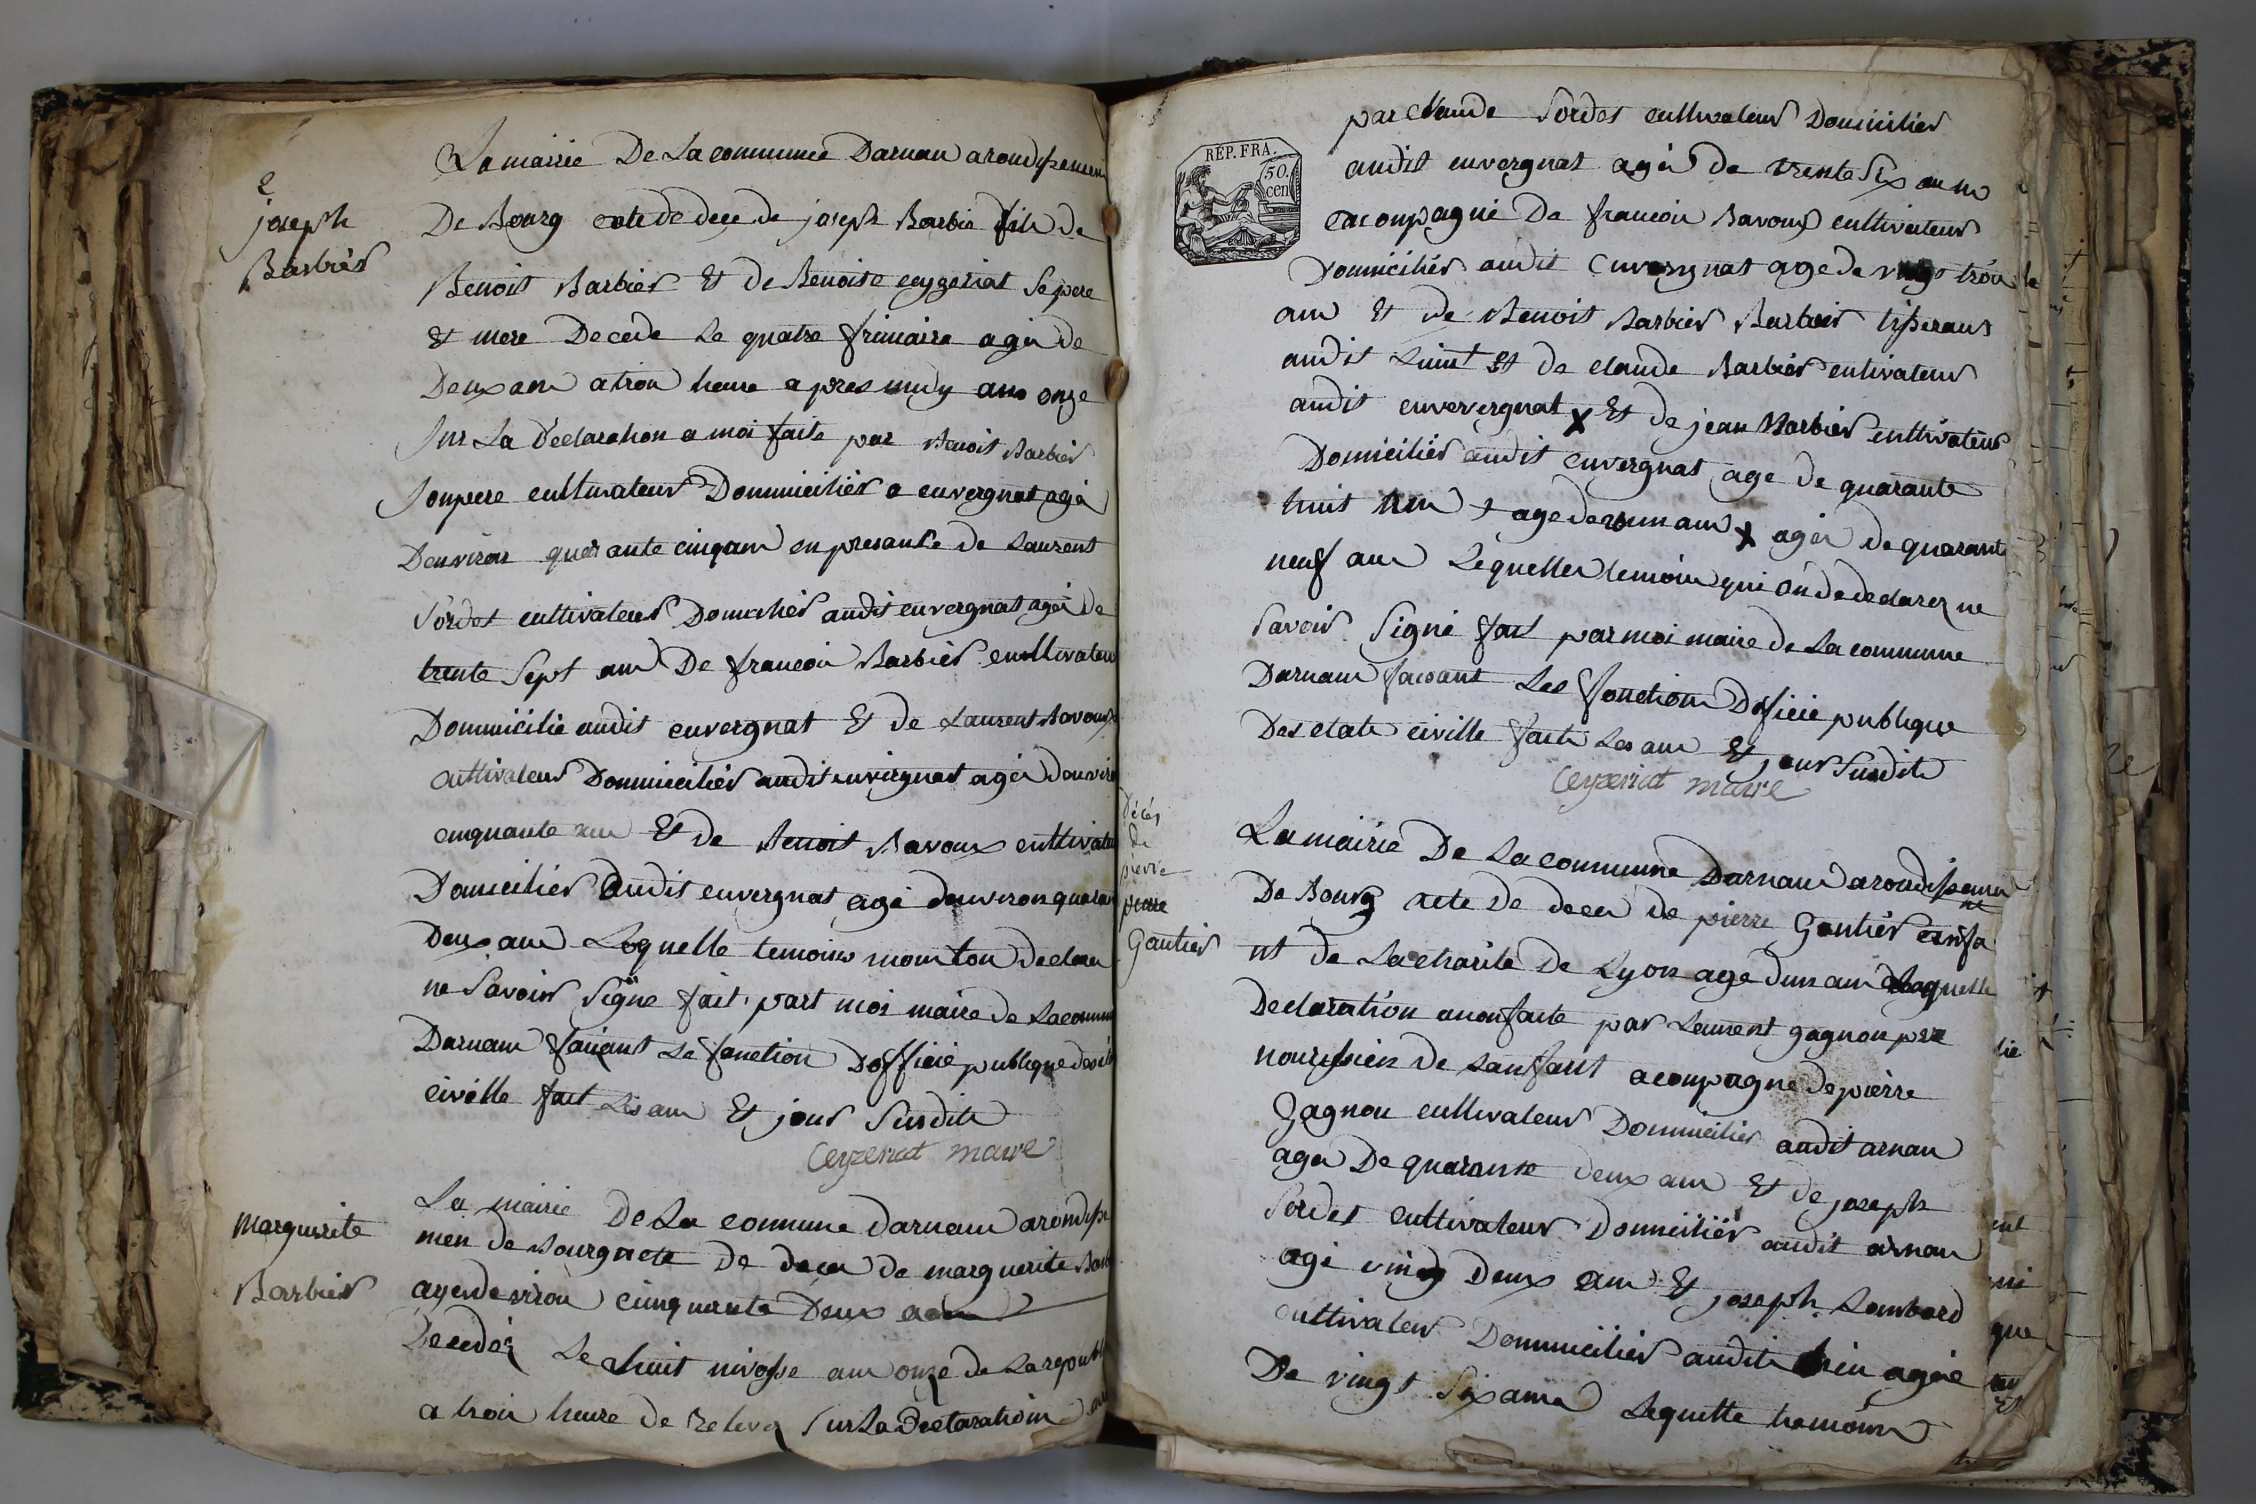 2
joseph
Barbier
La mairie De La commune Darnan arondissemen
De Bourg acte de dece de joseph Barbié fils de
Benoit Barbier Et de Benoite ceyzeriat Sepere
Et mere Decede Le quatre frimaire agé de
Deux ans a troi heure apres midy ans onze
sur La Declaration a moi faite par Benoit Barbier
son pere cultivateur Dommicilier a cuvergnat agé
Denviron quarante cinq ans en presante de Laurent
Sordet cultivateur Domicilier audit cuvergnat agé de
trente Sept ans De francoi Barbier cultivateu
Dommicilié audit cuvergnat Et de Laurent Bavoux
cultivateur Dommicilier audit cuvergnat agé Denviro
cinquante ans Et de Benoit Bavoux cultivateu
Domicilier audit cuvergnat agé denviron quaran
Deux ans Lequelle temoins mon tou declare
ne Savoir Signe fait part moi maire de La commu
Darnans faisant La fonction Dofficié publique des é
civille fait Les ans Et jour Susdite
Ceyzeriat maire
Marguerite
Barbier
La mairie De La commune darnans arondisse
men de Bourg acte De deces de marguerite Barb
agé denviron cinquante Deux ans
Decedéz Le huit nivosse ans onze de La republ
a troi heure de relevez Sur La Declaration
par Claude Sordet cultivateur Domicilier
REP. FRA.
50.
cen
audit cuvergnat agé de trente Six ans
acoupagné De francoi Bavoux cultivateur
Domicilier audit Cuvergnat age de vingt troi
ans Et de Benoit Barbier Barbier tisserans
audit Lieut Et de claude Barbier cultivateur
audit cuververgnat x Et de jean Barbier cultivateur
Domicilier audit cuvergnat age de quarante
huit ans + age de ans x agé de quarante
neuf ans Lequelle temoin qui on de declarez ne
Savoir Signé fait par moi maire de La commune
Darnans faisant Les fonction Doficié publique
Des etate civille faite Les ans Et jour Susdite
Ceyzeriat maire
Décés
de
pierre
pierre
Gautier
La mairie De La commune Darnans arondissemen
nt
De Bourg acte De deces de pierre Gautier enfa
nt de La charite De Lyon age dun ans Laquelle
Declaration a mon faite par Laurent gagnon pere
nourissier de Lanfant acompagne de pierre
Gagnon cultivateur Dommicilier audit arnan
agé De quarante deux ans Et de joseph
Sordet cultivateur Dommicilier audit arnan
agé vingt Deux ans Et joseph Lombard
cultivateur Dommicilier audit Lieu agée
De vingt Six ans Lequelle temoins